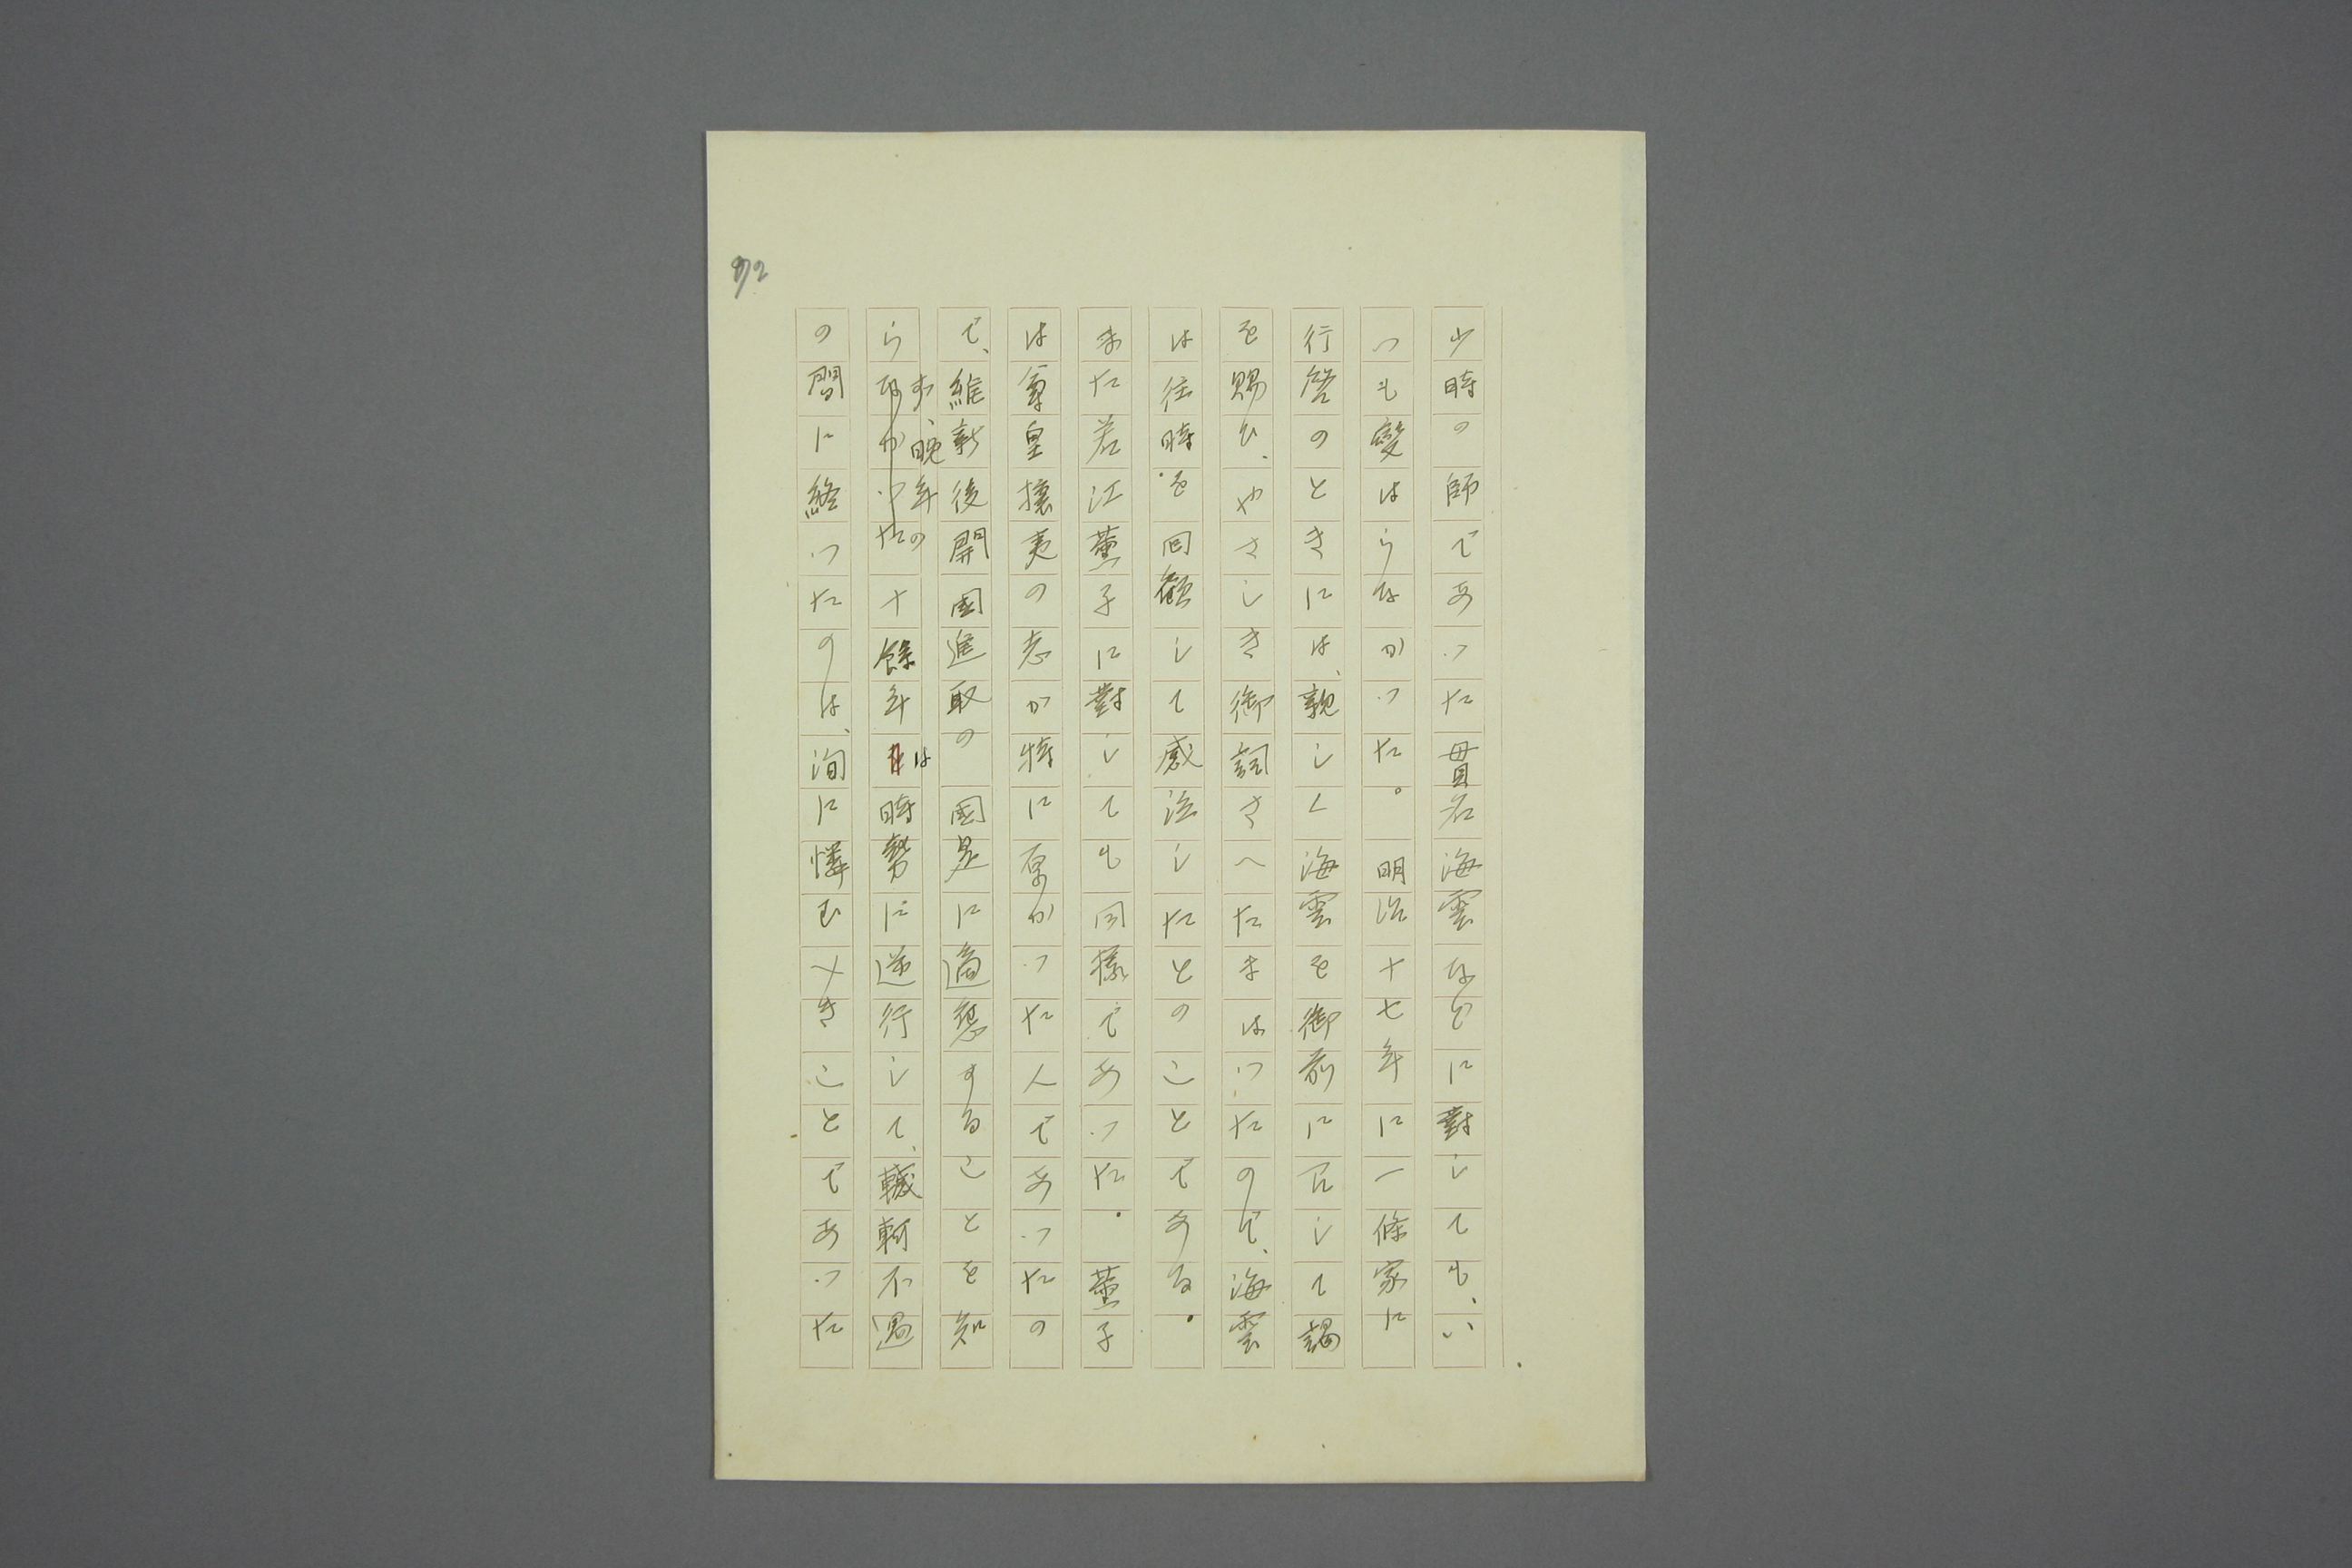 少時の師であった貫名海雲などに對しても、い
つも變はらなかった。明治十七年に一條家に
行啓のときには、親しく海雲を御前に召して謁
を賜ひ、やさしき御詞さへたまはったので、海雲
は往時を回顧して感泣したとのことである。
また若江薫子に對しても同様であった。薫子
は尊皇攘夷の志が特に厚かった人であったの
で、維新後開國進取の國是に適應することを知
らず、晩年の十餘年は時勢に逆行して、轗軻不遇
の間に終ったのは、洵に憐むべきことであった
92